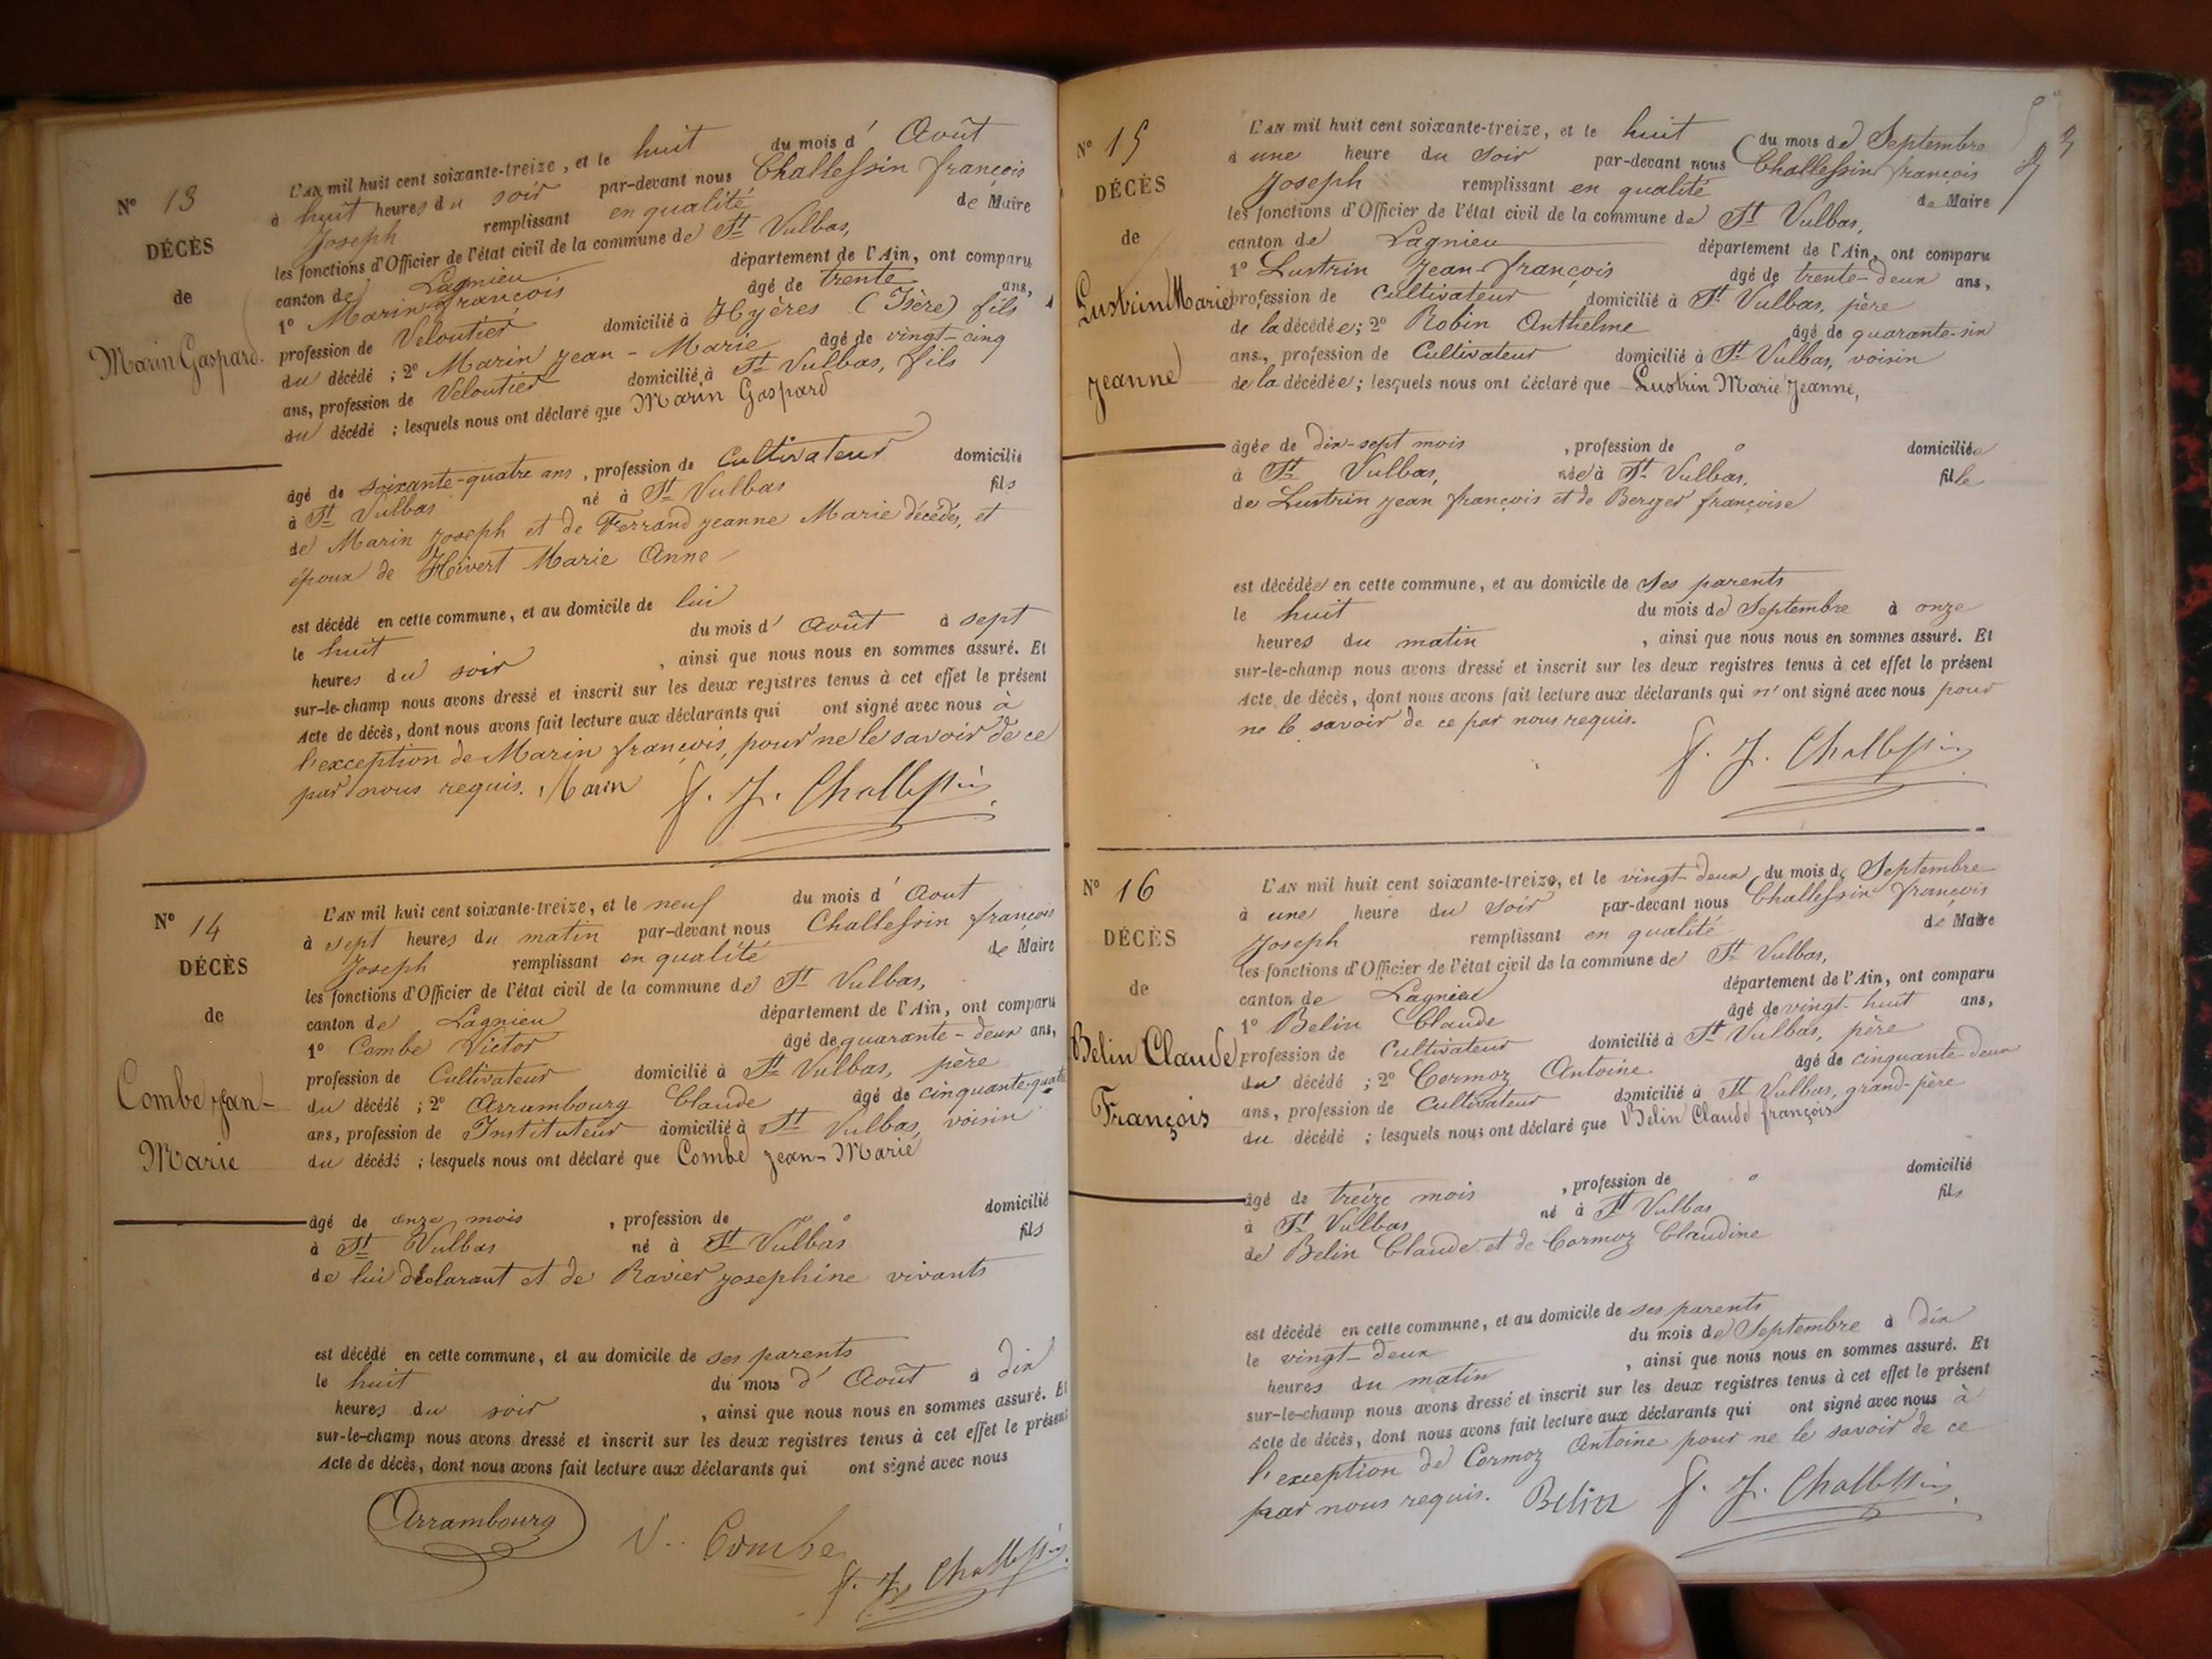 N° 13
DÉCÈS
de
Marin Gaspard.
L'AN mil huit cent soixante-treize, et le huit du mois d' Août
à huit heures du soir par-devant nous Challessin françois
Joseph remplissant en qualité de Maire
les fonctions d'Officier de l'état civil de la commune de St Vulbas,
canton de Lagnieu département de l'Ain, ont comparu
1° Marin françois âgé de trente ans,
profession de Veloutier domicilié à Hyères (Isère) fils
du décédé ; 2° Marin Jean-Marie âgé de vingt-cinq
ans, profession de Veloutier domicilié à St Vulbas, fils
du décédé ; lesquels nous ont déclaré que Marin Gaspard
âgé de soixante-quatre ans, profession de Cultivateur domicilié
à St Vulbas né à St Vulbas fils
de Marin Joseph et de Ferrand Jeanne Marie décédés, et
époux de Hivert Marie Anne
est décédé en cette commune, et au domicile de lui
le huit du mois d' Août à sept
heures du soir , ainsi que nous nous en sommes assuré. Et
sur-le-champ nous avons dressé et inscrit sur les deux registres tenus à cet effet le présent
Acte de décès, dont nous avons fait lecture aux déclarants qui ont signé avec nous à
l'exception de Marin françois, pour ne le savoir de ce
par nous requis. Marin F. J. Challessin
N° 14
DÉCÈS
de
Combe Jean-
Marie
L'AN mil huit cent soixante-treize, et le neuf du mois d' Aout
à sept heures du matin par-devant nous Challessin françois
Joseph remplissant en qualité de Maire
les fonctions d'Officier de l'état civil de la commune de St Vulbas,
canton de Lagnieu département de l'Ain, ont comparu
1° Combe Victor âgé de quarante-deux ans,
profession de Cultivateur domicilié à St Vulbas, père
du décédé ; 2° Arrambourg Claude âgé de cinquante-quatre
ans, profession de Instituteur domicilié à St Vulbas, voisin
du décédé ; lesquels nous ont déclaré que Combe Jean-Marie
âgé de onze mois , profession de domicilié
à St Vulbas né à St Vulbas fils
de lui déclarant et de Ravier Josephine vivants
est décédé en cette commune, et au domicile de ses parents
le huit du mois d' Août à dix
heures du soir , ainsi que nous nous en sommes assuré. Et
sur-le-champ nous avons dressé et inscrit sur les deux registres tenus à cet effet le présent
Acte de décès, dont nous avons fait lecture aux déclarants qui ont signé avec nous
Arrambourg V. Combe
F. J. Challessin
N° 15
DÉCÈS
de
Lustrin Marie
Jeanne
L'AN mil huit cent soixante-treize, et le huit du mois de Septembre
à une heure du soir par-devant nous Challessin françois
Joseph remplissant en qualité de Maire
les fonctions d'Officier de l'état civil de la commune de St Vulbas,
canton de Lagnieu département de l'Ain, ont comparu
1° Lustrin Jean-françois âgé de trente-deux ans,
profession de Cultivateur domicilié à St Vulbas, père
de la décédée; 2° Robin Anthelme âgé de quarante-six
ans, profession de Cultivateur domicilié à St Vulbas, voisin
de la décédée; lesquels nous ont déclaré que Lustrin Marie Jeanne,
âgée de dix-sept mois , profession de domiciliée
à St Vulbas, née à St Vulbas, fille
de Lustrin Jean françois et de Berger françoise
est décédée en cette commune, et au domicile de Ses parents
le huit du mois de Septembre à onze
heures du matin , ainsi que nous nous en sommes assuré. Et
sur-le-champ nous avons dressé et inscrit sur les deux registres tenus à cet effet le présent
Acte de décès, dont nous avons fait lecture aux déclarants qui n'ont signé avec nous pour
ne le savoir de ce par nous requis.
F. J. Challessin
N° 16
DÉCÈS
de
Belin Claude
François
L'AN mil huit cent soixante-treize, et le vingt-deux du mois de Septembre
à une heure du soir par-devant nous Challessin françois
Joseph remplissant en qualité de Maire
les fonctions d'Officier de l'état civil de la commune de St Vulbas,
canton de Lagnieu département de l'Ain, ont comparu
1° Belin Claude âgé de vingt-huit ans,
profession de Cultivateur domicilié à St Vulbas, père
du décédé ; 2° Cormoz Antoine âgé de cinquante-deux
ans, profession de Cultivateur domicilié à St Vulbas, grand-père
du décédé ; lesquels nous ont déclaré que Belin Claude françois
âgé de treize mois , profession de domicilié
à St Vulbas né à St Vulbas fils
de Belin Claude et de Cormoz Claudine
est décédé en cette commune, et au domicile de ses parents
le vingt-deux du mois de Septembre à dix
heures du matin , ainsi que nous nous en sommes assuré. Et
sur-le-champ nous avons dressé et inscrit sur les deux registres tenus à cet effet le présent
Acte de décès, dont nous avons fait lecture aux déclarants qui ont signé avec nous à
l'exception de Cormoz Antoine pour ne le savoir de ce
par nous requis. Belin F. J. Challessin